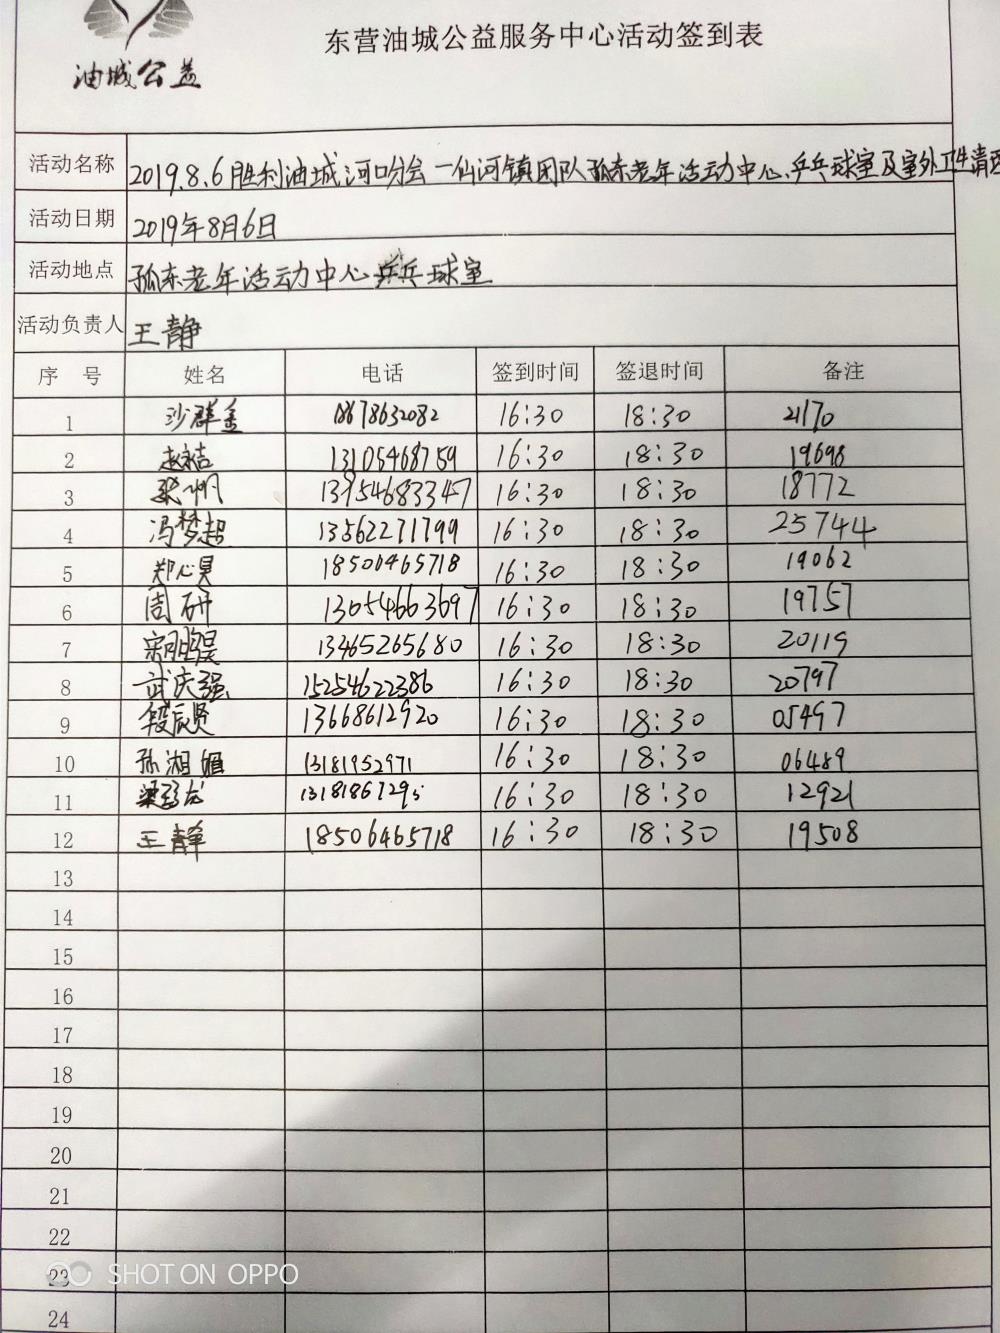 油城公益
东营油城公益服务中心活动签到表
活动名称 2019.8.6胜利油城河口分会一仙河镇团队孤东老年活动中心、乒乓球室及室外卫生清理
活动日期 2019年8月6日
活动地点 孤东老年活动中心乒乓球室
活动负责人 王静
序号 姓名 电话 签到时间 签退时间 备注
1 沙群 18678632082 16:30 18:30 21170
2 赵 13105468759 16:30 18:30 19698
3 张帆 13954683347 16:30 18:30 18772
4 冯梦超 13562271799 16:30 18:30 25744
5 郑心昊 18506465718 16:30 18:30 19062
6 周研 13054663697 16:30 18:30 19757
7 宋鹏昊 13465265680 16:30 18:30 20119
8 武庆强 15254622386 16:30 18:30 20797
9 段辰贤 13668612920 16:30 18:30 05497
10 孙湘 13181952971 16:30 18:30 06489
11 梁 13181867295 16:30 18:30 12921
12 王静 18506465718 16:30 18:30 19508
13
14
15
16
17
18
19
20
21
22
23
SHOT ON OPPO
24